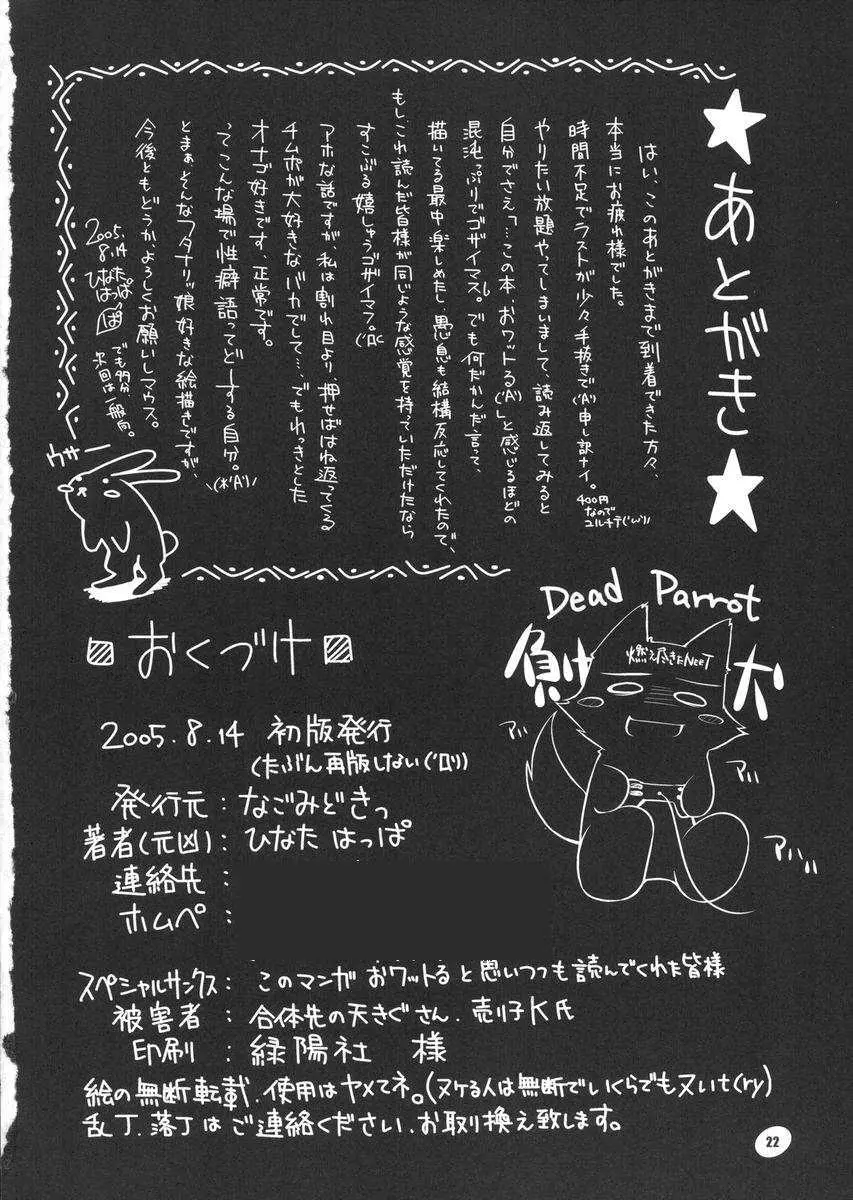 ★あとがき★
はい、このあとがきまで到着できた方々、
本当にお疲れ様でした。
時間不足でラストが少々手抜きで('A`)申し訳ナイ。
400円
なので
ユルチテ('ω`)
やりたい放題やってしまいまして、読み返してみると
自分でさえ「…この本、おワットる('A`)」と感じるほどの
混沌っぷりでゴザイマス。でも何だかんだ言って、
描いてる最中楽しめたし 愚息も結構反応してくれたので、
もし、これ読んだ皆様が同じような感覚を持っていただけたなら
すこぶる嬉しゅうゴザイマス。
アホな話ですが、私は割れ目より、押せばはね返ってくる
チムポが大好きなバカでして…、でもれっきとした
オナゴ好きです、正常です。
ってこんな場で性癖語ってどーする自分。
とまぁ、そんなフタナリッ娘好きな絵描きですが、
今後ともどうか、よろしくお願いしマウス。
2005.
8.14
ひなた
はっぱ
ぱ
でも多分
次回は一般向。
ウサー
Dead Parrot
負け犬
燃え尽きたNEET
アハ
アハ
アハ
おくづけ
2005.8.14 初版発行
(たぶん再版しない('ロ`))
発行元:なごみどきっ
著者(元凶):ひなた はっぱ
連絡先:
ホムペ:
スペシャルサンクス:このマンガ おワットると思いつつも読んでくれた皆様
被害者:合体先の天きぐさん、売り子K氏
印刷:緑陽社 様
絵の無断転載、使用はヤメてネ。(ヌケる人は無断でいくらでもヌいt(ry)
乱丁、落丁はご連絡ください、お取り換え致します。
22